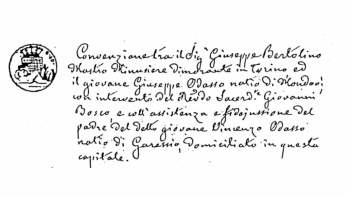 Convenzione tra il Sig.r Giuseppe Bertolino
Mastro Minusiere dimorante in Torino ed
il giovane Giuseppe Odasso natio di Mondovì
con intervento del Rev.do Sacerd.e Giovanni
Bosco e coll'assistenza e fidejussione del
padre del detto giovane Vincenzo Odasso
natio di Garessio, domiciliato in questa
capitale.